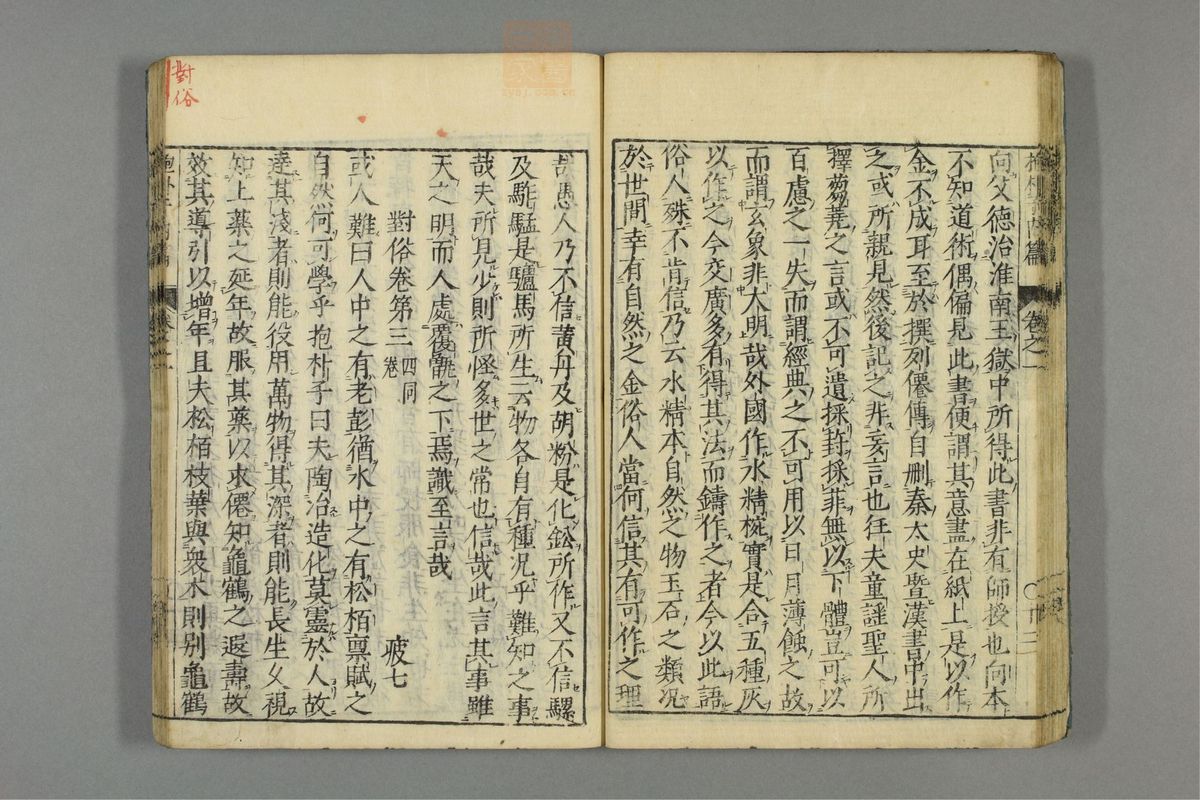 向父德治淮南王獄中所得此書非有師授也向本
不知道術偶偏見此書便謂其意盡在紙上是以作
金不成耳至於撰列僊傳自刪秦太史暨漢書中出
之或所親見然後記之非妄言也狂夫童謡聖人所
擇蒭蕘之言或不可遺採葑採菲無以下體豈可以
百慮之一失而謂經典之不可用以日月薄蝕之故
而謂玄象非大明哉外國作水精椀實是合五種灰
以作之今交廣多有得其法而鑄作之者今以此語
俗人殊不肯信乃云水精本自然之物玉石之類况
於世間幸有自然之金俗人當何信其有可作之理
哉愚人乃不信黄丹及胡粉是化鈆所作又不信騾
及駏驉是驢馬所生云物各自有種况乎難知之事
哉夫所見少則所怪多世之常也信哉此言其事雖
天之明而人處覆甑之下焉識至言哉
對俗卷第三 四同卷 疲七
或人難曰人中之有老彭猶水中之有松栢禀賦之
自然何可學乎抱朴子曰夫陶冶造化莫靈於人故
達其淺者則能役用萬物得其深者則能長生久視
知上藥之延年故服其藥以求僊知龜鶴之遐壽故
效其導引以增年且夫松栢枝葉與衆木則别龜鶴
卷之一
對俗